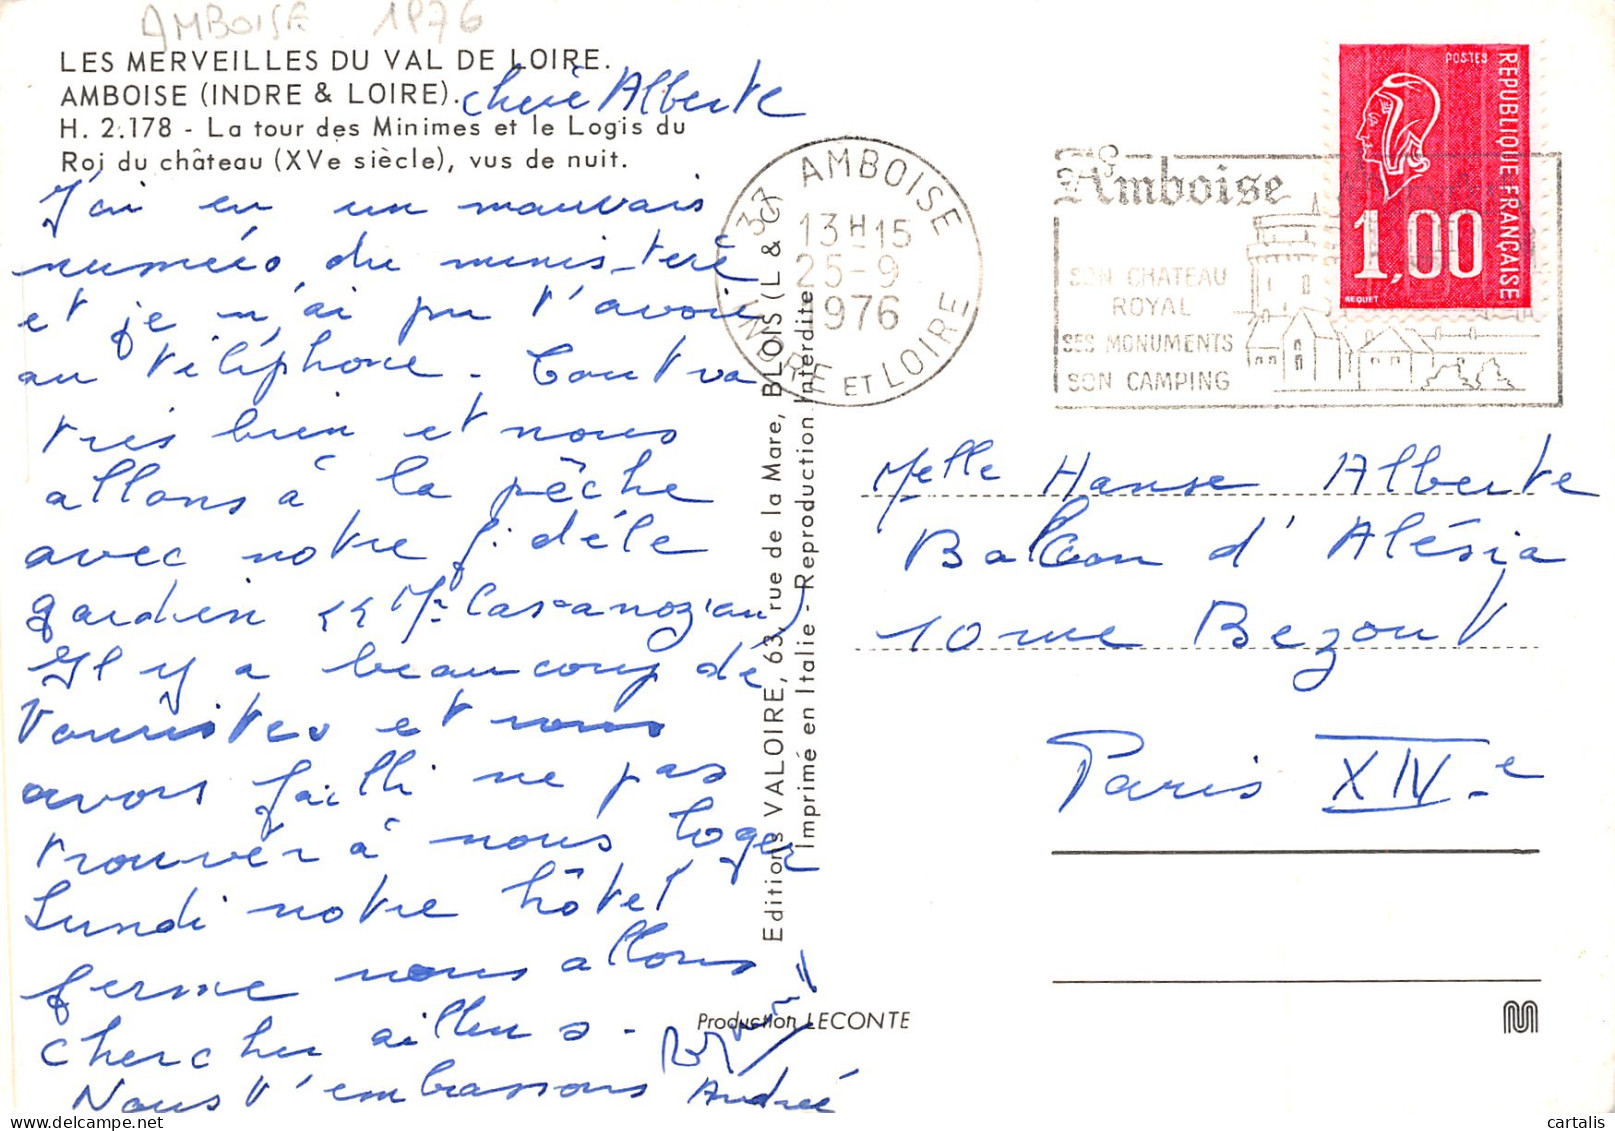 AMBOISE 1976
LES MERVEILLES DU VAL DE LOIRE.
AMBOISE (INDRE & LOIRE).
H. 2.178 - La tour des Minimes et le Logis du
Roi du château (XVe siècle), vus de nuit.
chère Alberte
J'ai eu un mauvais
numéro du ministère
et je n'ai pu t'avoir
au téléphone. Tout va
très bien et nous
allons à la pêche
avec notre fidèle
gardien << Mr Casanozian)
Il y a beaucoup de
touristes et nous
avons failli ne pas
trouver à nous loger
Lundi notre hôtel
ferme nous allons
chercher ailleurs.
Nous t'embrassons André
Editions VALOIRE, 63, rue de la Mare, BLOIS (L & C)
Imprimé en Italie - Reproduction Interdite
Production LECONTE
37 AMBOISE
13H15
25-9
1976
INDRE ET LOIRE
Amboise
SON CHATEAU
ROYAL
SES MONUMENTS
SON CAMPING
POSTES
REPUBLIQUE FRANÇAISE
1,00
BEQUET
Melle Hanse Alberte
Balcon d'Alésia
10 rue Bezout
Paris XIV.e
cartalis